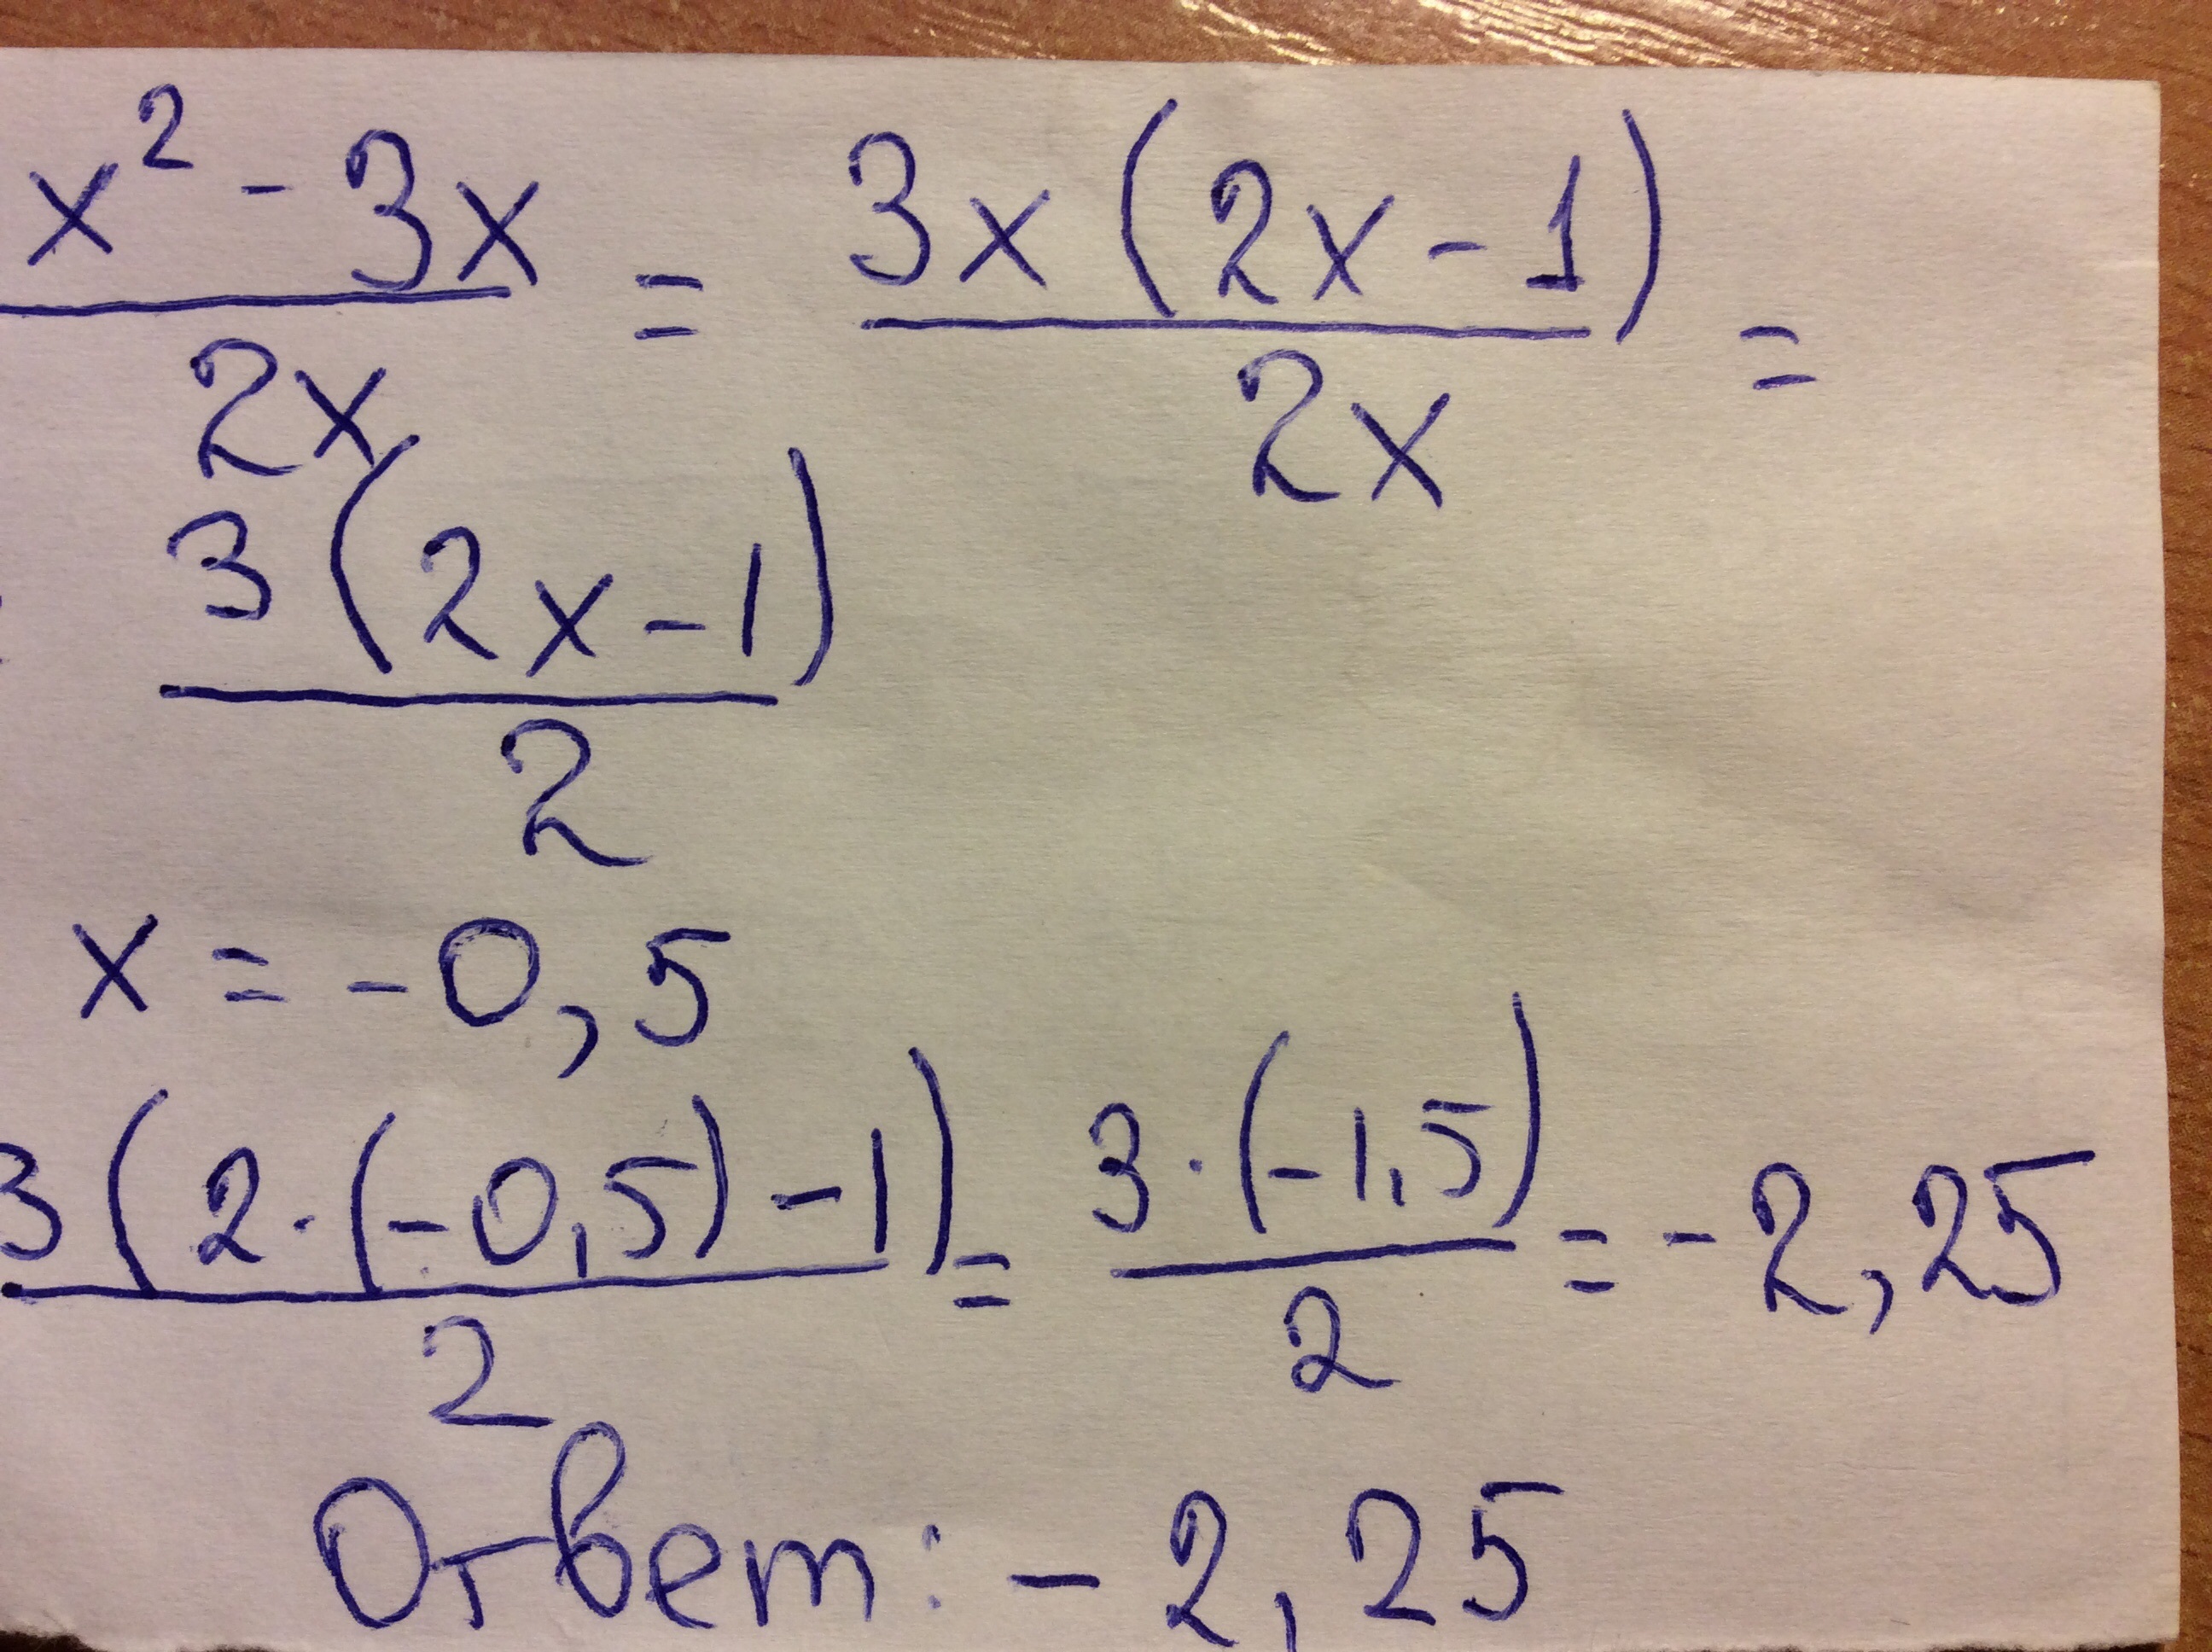 x² - 3x / 2x = 3x(2x-1) / 2x =
3(2x-1) / 2
x = -0,5
3(2·(-0,5)-1) / 2 = 3·(-1,5) / 2 = -2,25
Ответ: -2,25